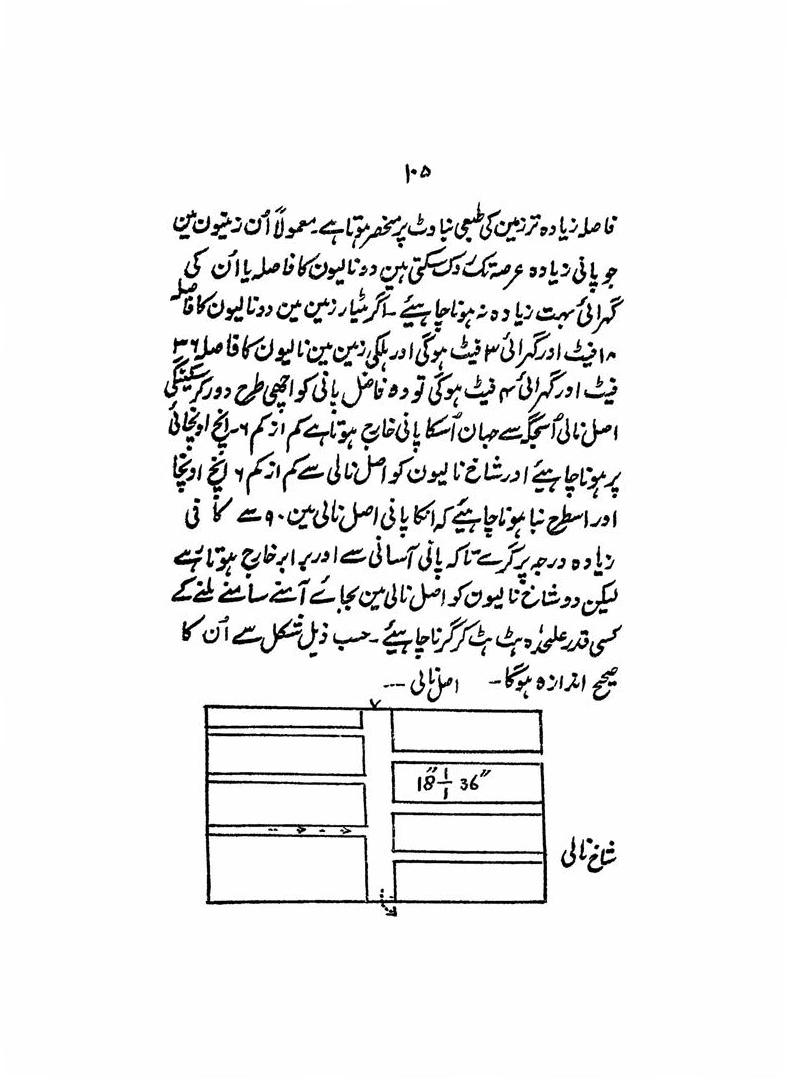 ۱۰۵
فاصلہ زیادہ تر زمین کی طبعی بناوٹ پر منحصر ہوتا ہے۔ معمولاً اُن زمینون مین
جو پانی زیادہ عرصہ تک روک سکتی ہین دو نالیون کا فاصلہ یا اُن کی
گہرائی بہت زیادہ نہ ہونا چاہیئے۔ اگر مٹیار زمین مین دو نالیون کا فاصلہ
۱۸ فیٹ اور گہرائی ۳ فیٹ ہوگی اور ہلکی زمین مین نالیون کا فاصلہ ۳۶
فیٹ اور گہرائی ۴ فیٹ ہوگی تو وہ فاضل پانی کو اچھی طرح دور کرسکینگی
اصل نالی اُسجگہ سے جہان اُسکا پانی خارج ہوتا ہے کم از کم ۶۔ انچ اونچائی
پر ہونا چاہیئے اور شاخ نالیون کو اصل نالی سے کم از کم ۶ انچ اونچا
اور اسطرح بنا ہونا چاہیئے کہ انکا پانی اصل نالی مین ۹۰ سے کافی
زیادہ درجہ پر گرے تاکہ پانی آسانی سے اور برابر خارج ہوتا رہے
لیکن دو شاخ نالیون کو اصل نالی مین بجائے آمنے سامنے ملنے کے
کسی قدر علحٰدہ ہٹ ہٹ کر گرنا چاہیئے۔ حسب ذیل شکل سے اُن کا
صحیح اندازہ ہوگا۔ اصل نالی ---
18" 1/1 36"
شاخ نالی